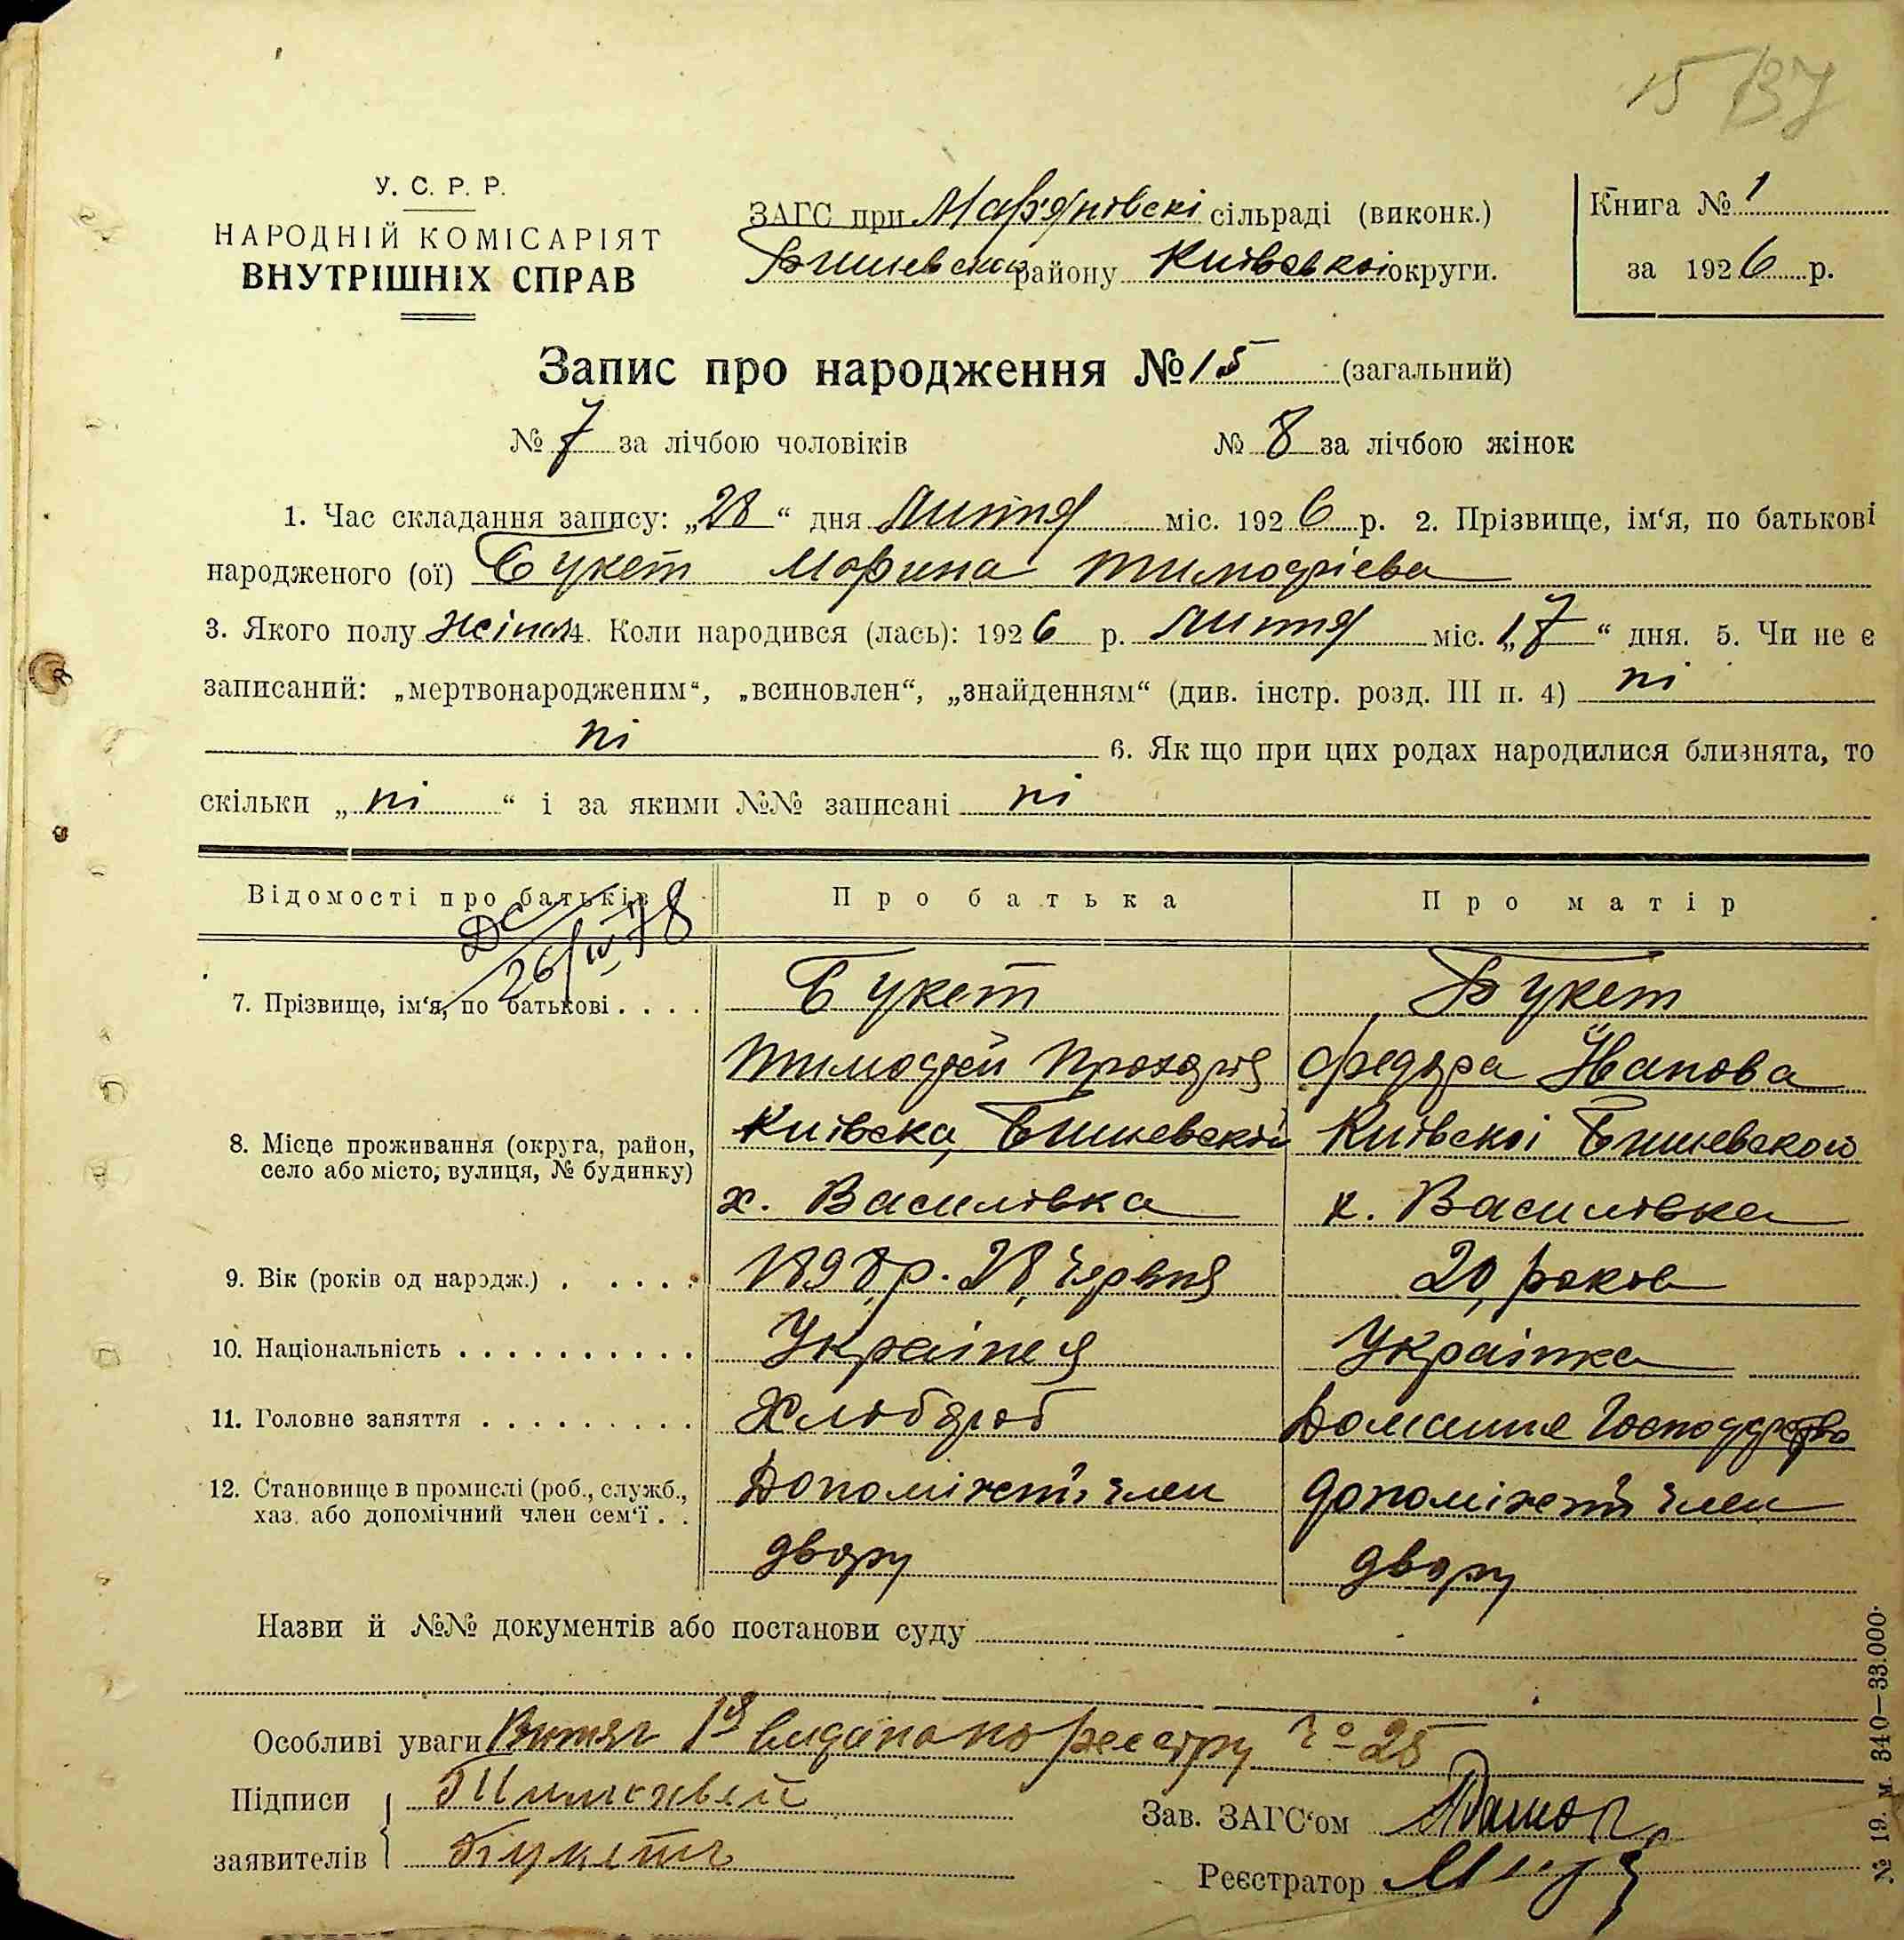 15 137
У. С. Р. Р.
НАРОДНІЙ КОМІСАРІЯТ
ВНУТРІШНІХ СПРАВ
ЗАГС при Мар'янівскі сільраді (виконк.)
Бишевского району Київської округи.
Книга № 1
за 1926 р.
Запис про народження № 15 (загальний)
№ 7 за лічбою чоловіків № 8 за лічбою жінок
1. Час складання запису: „28“ дня Липня міс. 1926 р. 2. Прізвище, ім‘я, по батькові
народженого (ої) Букет Марина тимофієва
3. Якого полу жіноч 4. Коли народився (лась): 1926 р. Липня міс. „17“ дня. 5. Чи не є
записаний: „мертвонародженим“, „всиновлен“, „знайденням“ (див. інстр. розд. III п. 4) ні
ні 6. Як що при цих родах народилися близнята, то
скільки „ні“ і за якими №№ записані ні
Відомості про батьків Про батька Про матір
26/IV 78
7. Прізвище, ім‘я, по батькові . . . . Букет Букет
тимофей Федора Іванова
8. Місце проживання (округа, район, село або місто, вулиця, № будинку) Київска, Бишевской Київскоі Бишевского
х. Василівка х. Василівка
9. Вік (років од народж.) . . . . . 1898 р. 28 червня 20 років
10. Національність . . . . . . . . . . Українец Українка
11. Головне заняття . . . . . . . . . Хлібороб Домашне Господарство
12. Становище в промислі (роб., служб., хаз. або допомічний член сем‘ї . . Допоміжний член допоміжний член
двору двору
Назви й №№ документів або постанови суду
Особливі уваги Витяг видано по реєстру № 25
Підписи заявителів Тимофей
Букетъ
Зав. ЗАГС‘ом
Реєстратор
№ 19. м. 340—33.000.